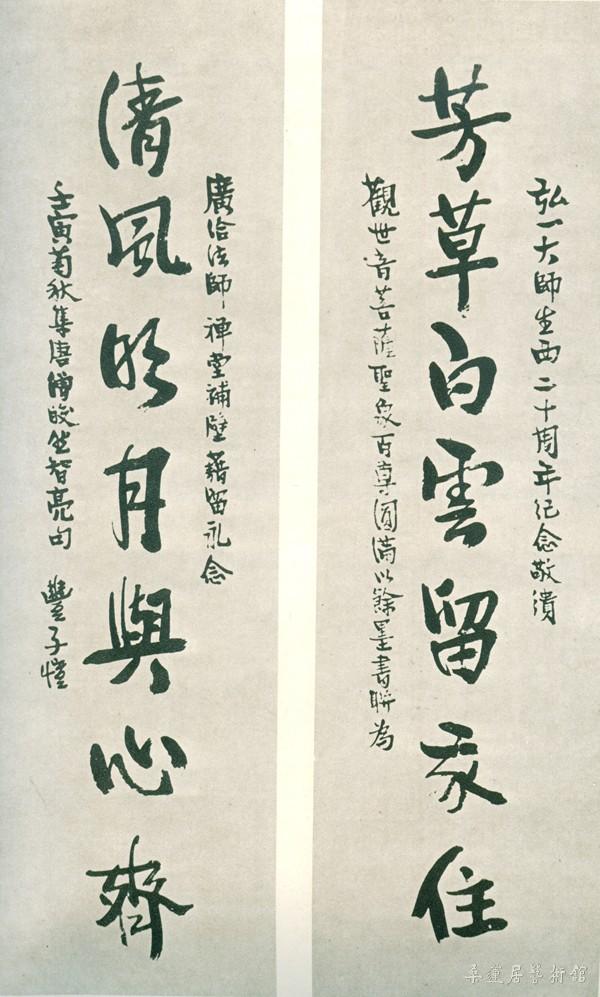 弘一大師生西二十周年紀念敬漬
芳草白雲留我住
觀世音菩薩聖像百尊圓滿以餘墨書聯為
廣洽法師禪堂補壁藉留永念
清風明月與心齊
壬寅菊秋集唐僧皎然智亮句 豐子愷
桑蓮居藝術館